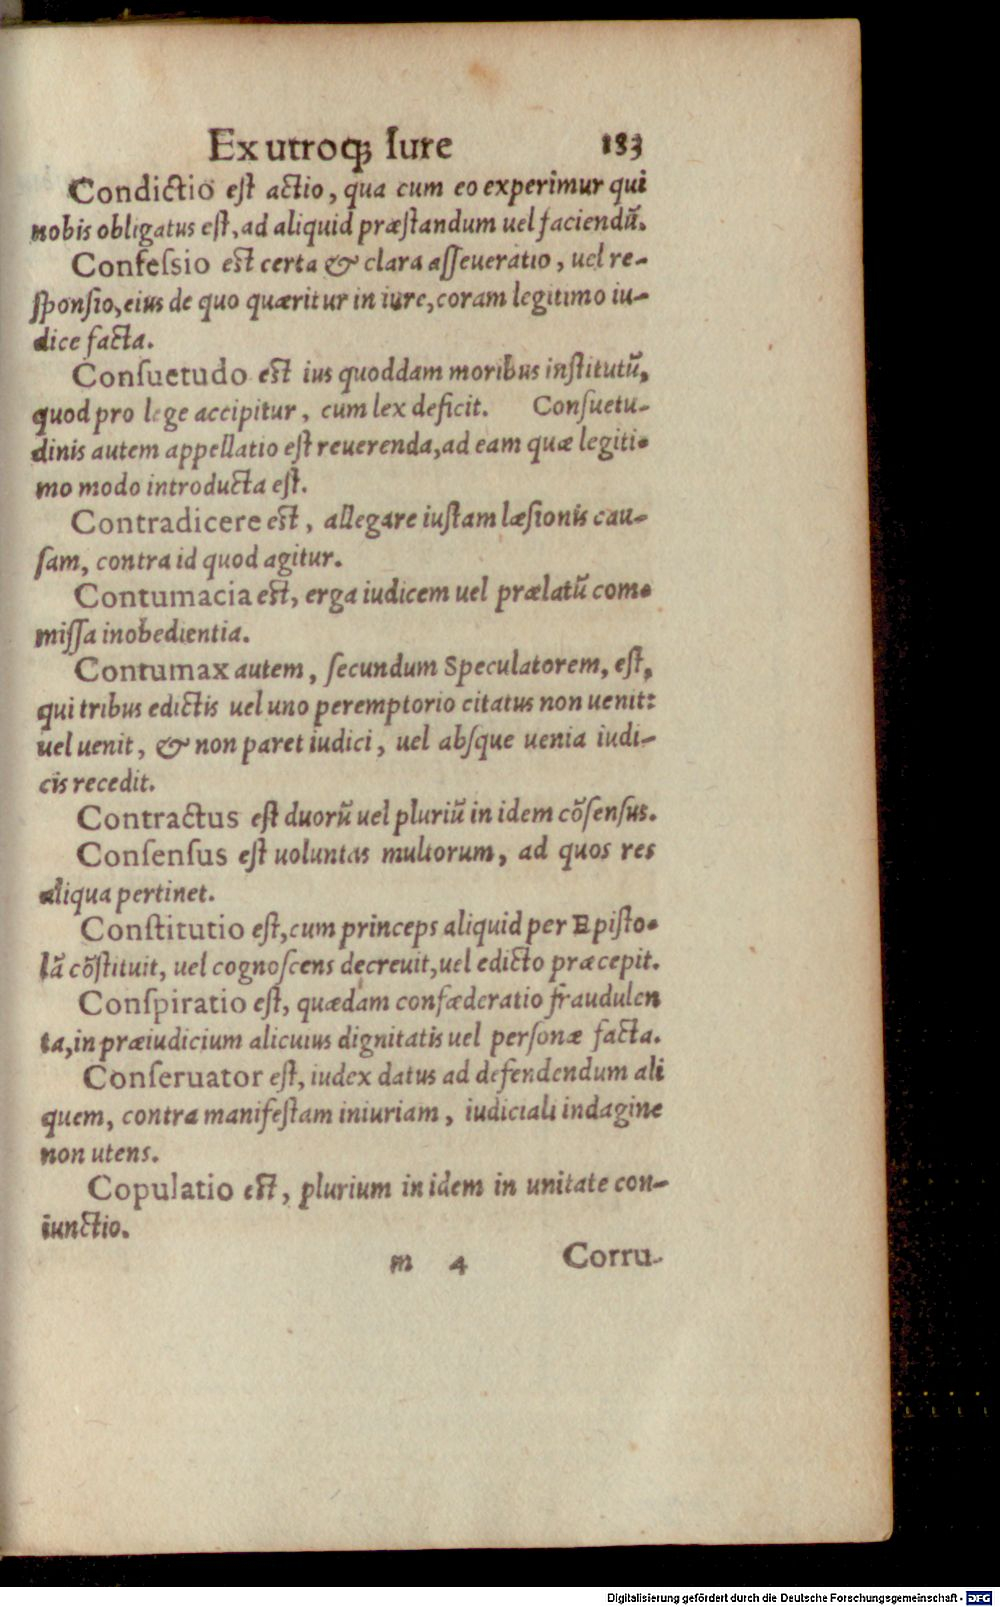 Ex utroqꝫ Iure 183
Condictio est actio, qua cum eo experimur qui
nobis obligatus est, ad aliquid præstandum uel faciendũ.
Confessio est certa & clara asseueratio, uel re-
sponsio, eius de quo quæritur in iure, coram legitimo iu-
dice facta.
Consuetudo est ius quoddam moribus institutũ,
quod pro lege accipitur, cum lex deficit. Consuetu-
dinis autem appellatio est reuerenda, ad eam quæ legiti-
mo modo introducta est.
Contradicere est, allegare iustam læsionis cau-
sam, contra id quod agitur.
Contumacia est, erga iudicem uel prælatũ com-
missa inobedientia.
Contumax autem, secundum Speculatorem, est,
qui tribus edictis uel uno peremptorio citatus non uenit:
uel uenit, & non paret iudici, uel absque uenia iudi-
cis recedit.
Contractus est duorũ uel pluriũ in idem cõsensus.
Consensus est uoluntas multorum, ad quos res
aliqua pertinet.
Constitutio est, cum princeps aliquid per Episto-
lã cõstituit, uel cognoscens decreuit, uel edicto præcepit.
Conspiratio est, quædam confæderatio fraudulen
ta, in præiudicium alicuius dignitatis uel personæ facta.
Conseruator est, iudex datus ad defendendum ali
quem, contra manifestam iniuriam, iudiciali indagine
non utens.
Copulatio est, plurium in idem in unitate con-
iunctio.
m 4 Corru-
Digitalisierung gefördert durch die Deutsche Forschungsgemeinschaft - DFG